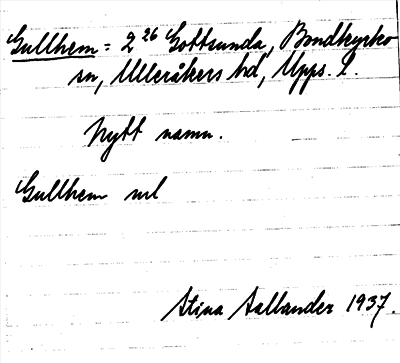 Gullhem = 2²⁶ Gottsunda, Bondkyrko
sn, Ulleråkers hd, Upps. l.
Nytt namn.
Gullhem ml
Stina Aallander 1937.